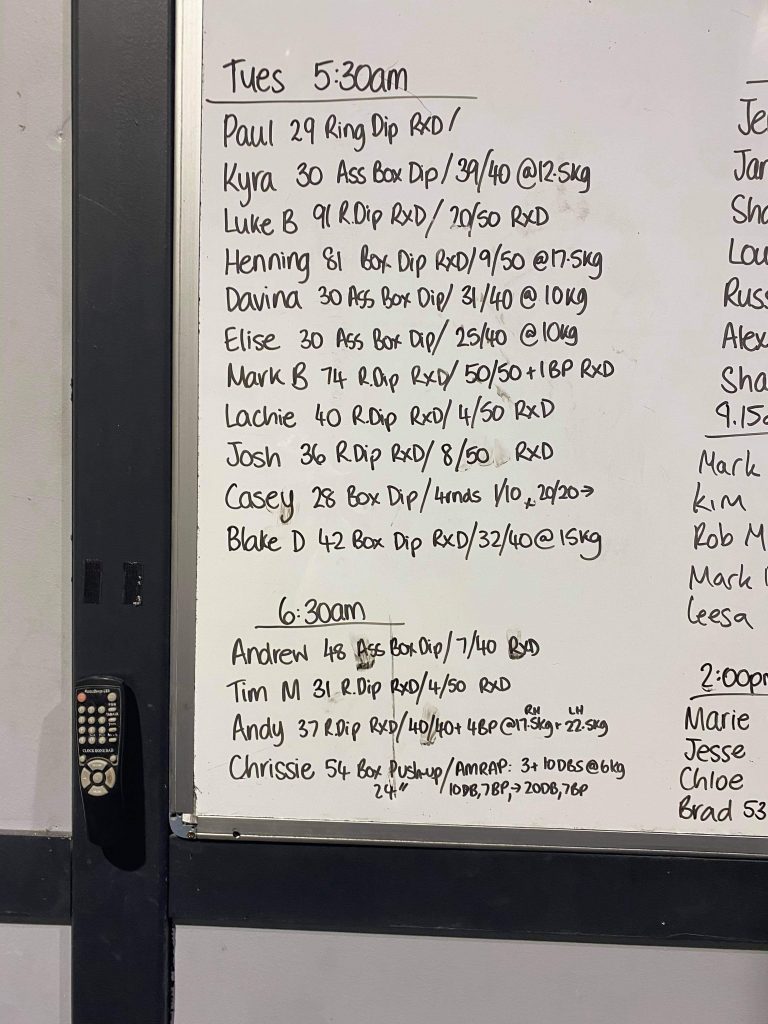 Tues 5:30am
Paul 29 Ring Dip RxD/
Kyra 30 Ass Box Dip/39/40 @12.5kg
Luke B 91 R.Dip RxD/20/50 RxD
Henning 81 Box Dip RxD/9/50 @17.5kg
Davina 30 Ass Box Dip/31/40 @ 10kg
Elise 30 Ass Box Dip/25/40 @10kg
Mark B 74 R.Dip RxD/50/50+1BP RxD
Lachie 40 R.Dip RxD/4/50 RxD
Josh 36 R.Dip RxD/8/50 RxD
Casey 28 Box Dip/4rnds 1/10 + 20/20→
Blake D 42 Box Dip RxD/32/40@15kg
6:30am
Andrew 48 Ass Box Dip/7/40 RxD
Tim M 31 R.Dip RxD/4/50 RxD
RH LH
Andy 37 R.Dip RxD/40/40+4BP@17.5kg+22.5kg
Chrissie 54 Box Push-up/AMRAP: 3+10DBS@6kg
24" 10DB,7BP,→20DB,7BP
Je
Jar
Sha
Lou
Russ
Alex
Sha
9.15a
Mark
Kim
Rob M
Mark
Leesa
2:00pm
Marie
Jesse
Chloe
Brad 53